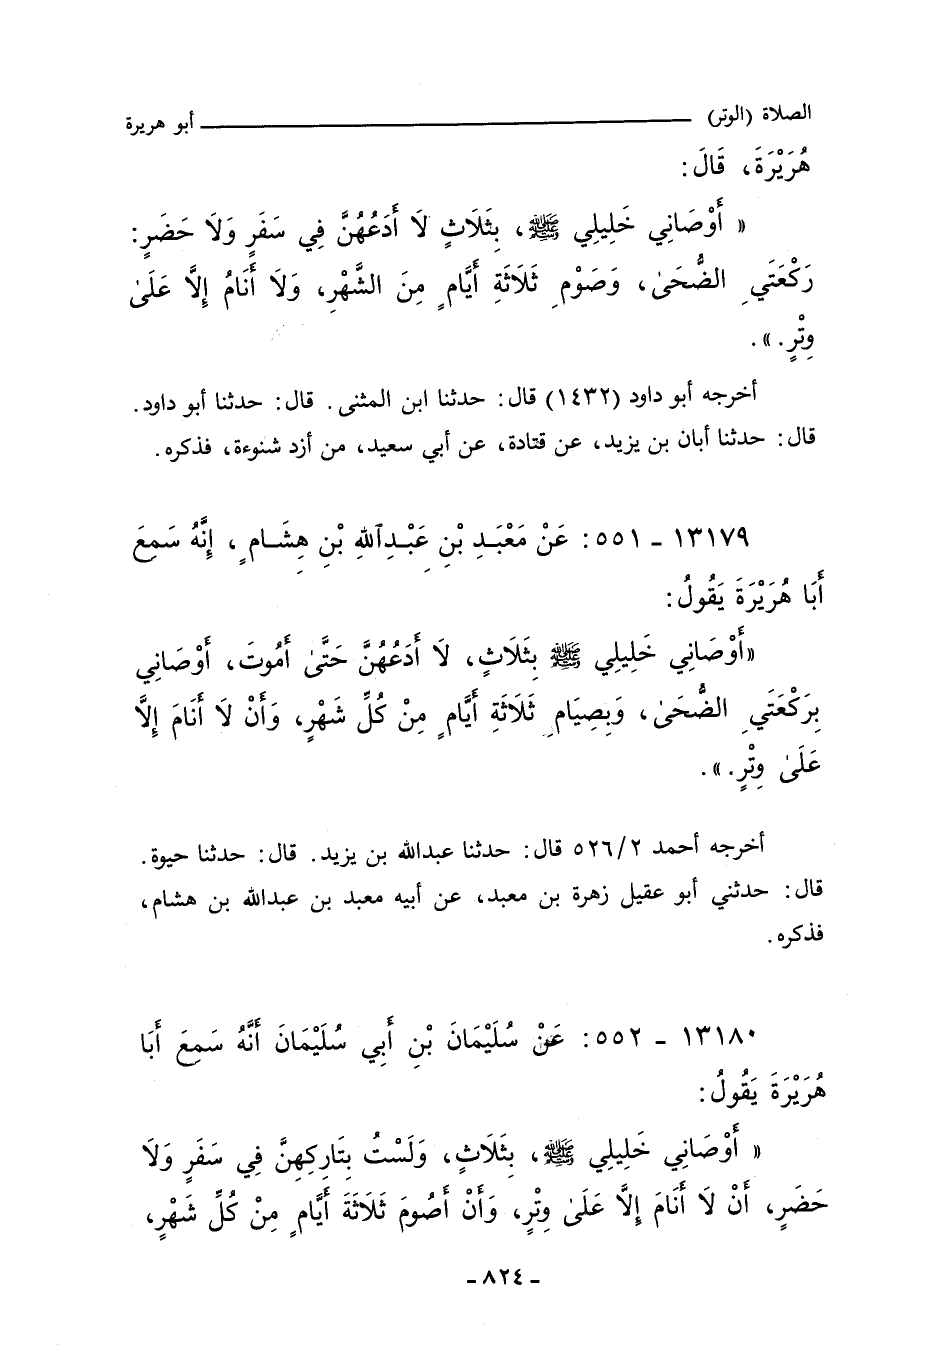 الصلاة (الوتر) ــــــــــ أبو هريرة
هُرَيْرَةَ، قَالَ:
« أَوْصَانِي خَلِيلِي ﷺ، بِثَلَاثٍ لَا أَدَعُهُنَّ فِي سَفَرٍ وَلَا حَضَرٍ:
رَكْعَتَيِ الضُّحَىٰ، وَصَوْمِ ثَلَاثَةِ أَيَّامٍ مِنَ الشَّهْرِ، وَلَا أَنَامُ إِلَّا عَلَىٰ
وِتْرٍ.».
أخرجه أبو داود (١٤٣٢) قال: حدثنا ابن المثنى. قال: حدثنا أبو داود.
قال: حدثنا أبان بن يزيد، عن قتادة، عن أبي سعيد، من أزد شنوءة، فذكره.
١٣١٧٩ - ٥٥١: عَنْ مَعْبَدِ بْنِ عَبْدِاللهِ بْنِ هِشَامٍ، إِنَّهُ سَمِعَ
أَبَا هُرَيْرَةَ يَقُولُ:
«أَوْصَانِي خَلِيلِي ﷺ بِثَلَاثٍ، لَا أَدَعُهُنَّ حَتَّىٰ أَمُوتَ، أَوْصَانِي
بِرَكْعَتَيِ الضُّحَىٰ، وَبِصِيَامِ ثَلَاثَةِ أَيَّامٍ مِنْ كُلِّ شَهْرٍ، وَأَنْ لَا أَنَامَ إِلَّا
عَلَىٰ وِتْرٍ.».
أخرجه أحمد ٥٢٦/٢ قال: حدثنا عبدالله بن يزيد. قال: حدثنا حيوة.
قال: حدثني أبو عقيل زهرة بن معبد، عن أبيه معبد بن عبدالله بن هشام،
فذكره.
١٣١٨٠ - ٥٥٢: عَنْ سُلَيْمَانَ بْنِ أَبِي سُلَيْمَانَ أَنَّهُ سَمِعَ أَبَا
هُرَيْرَةَ يَقُولُ:
« أَوْصَانِي خَلِيلِي ﷺ، بِثَلَاثٍ، وَلَسْتُ بِتَارِكِهِنَّ فِي سَفَرٍ وَلَا
حَضَرٍ، أَنْ لَا أَنَامَ إِلَّا عَلَىٰ وِتْرٍ، وَأَنْ أَصُومَ ثَلَاثَةَ أَيَّامٍ مِنْ كُلِّ شَهْرٍ،
- ٨٢٤ -